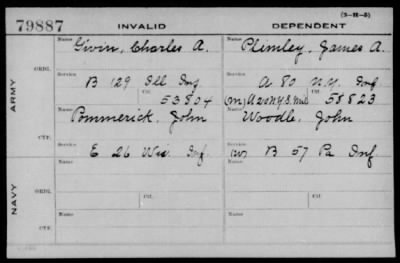 (3-H-5)
79887 INVALID DEPENDENT
Name Givin, Charles A. Name Plimley, James A.
ARMY
ORIG.
Service Service
B 129 Ill Inf A 80 N.Y. Inf
Ctf. 53804 (M) A 20 N.Y.S. Mil Ctf. 58823
Name Pommerick, John Name Woodle, John
CTF.
Service Service
E 26 Wis. Inf (W) B 57 Pa Inf
NAVY
Name Name
ORIG.
Service Ctf. Service Ctf.
Name Name
CTF.
Service Service